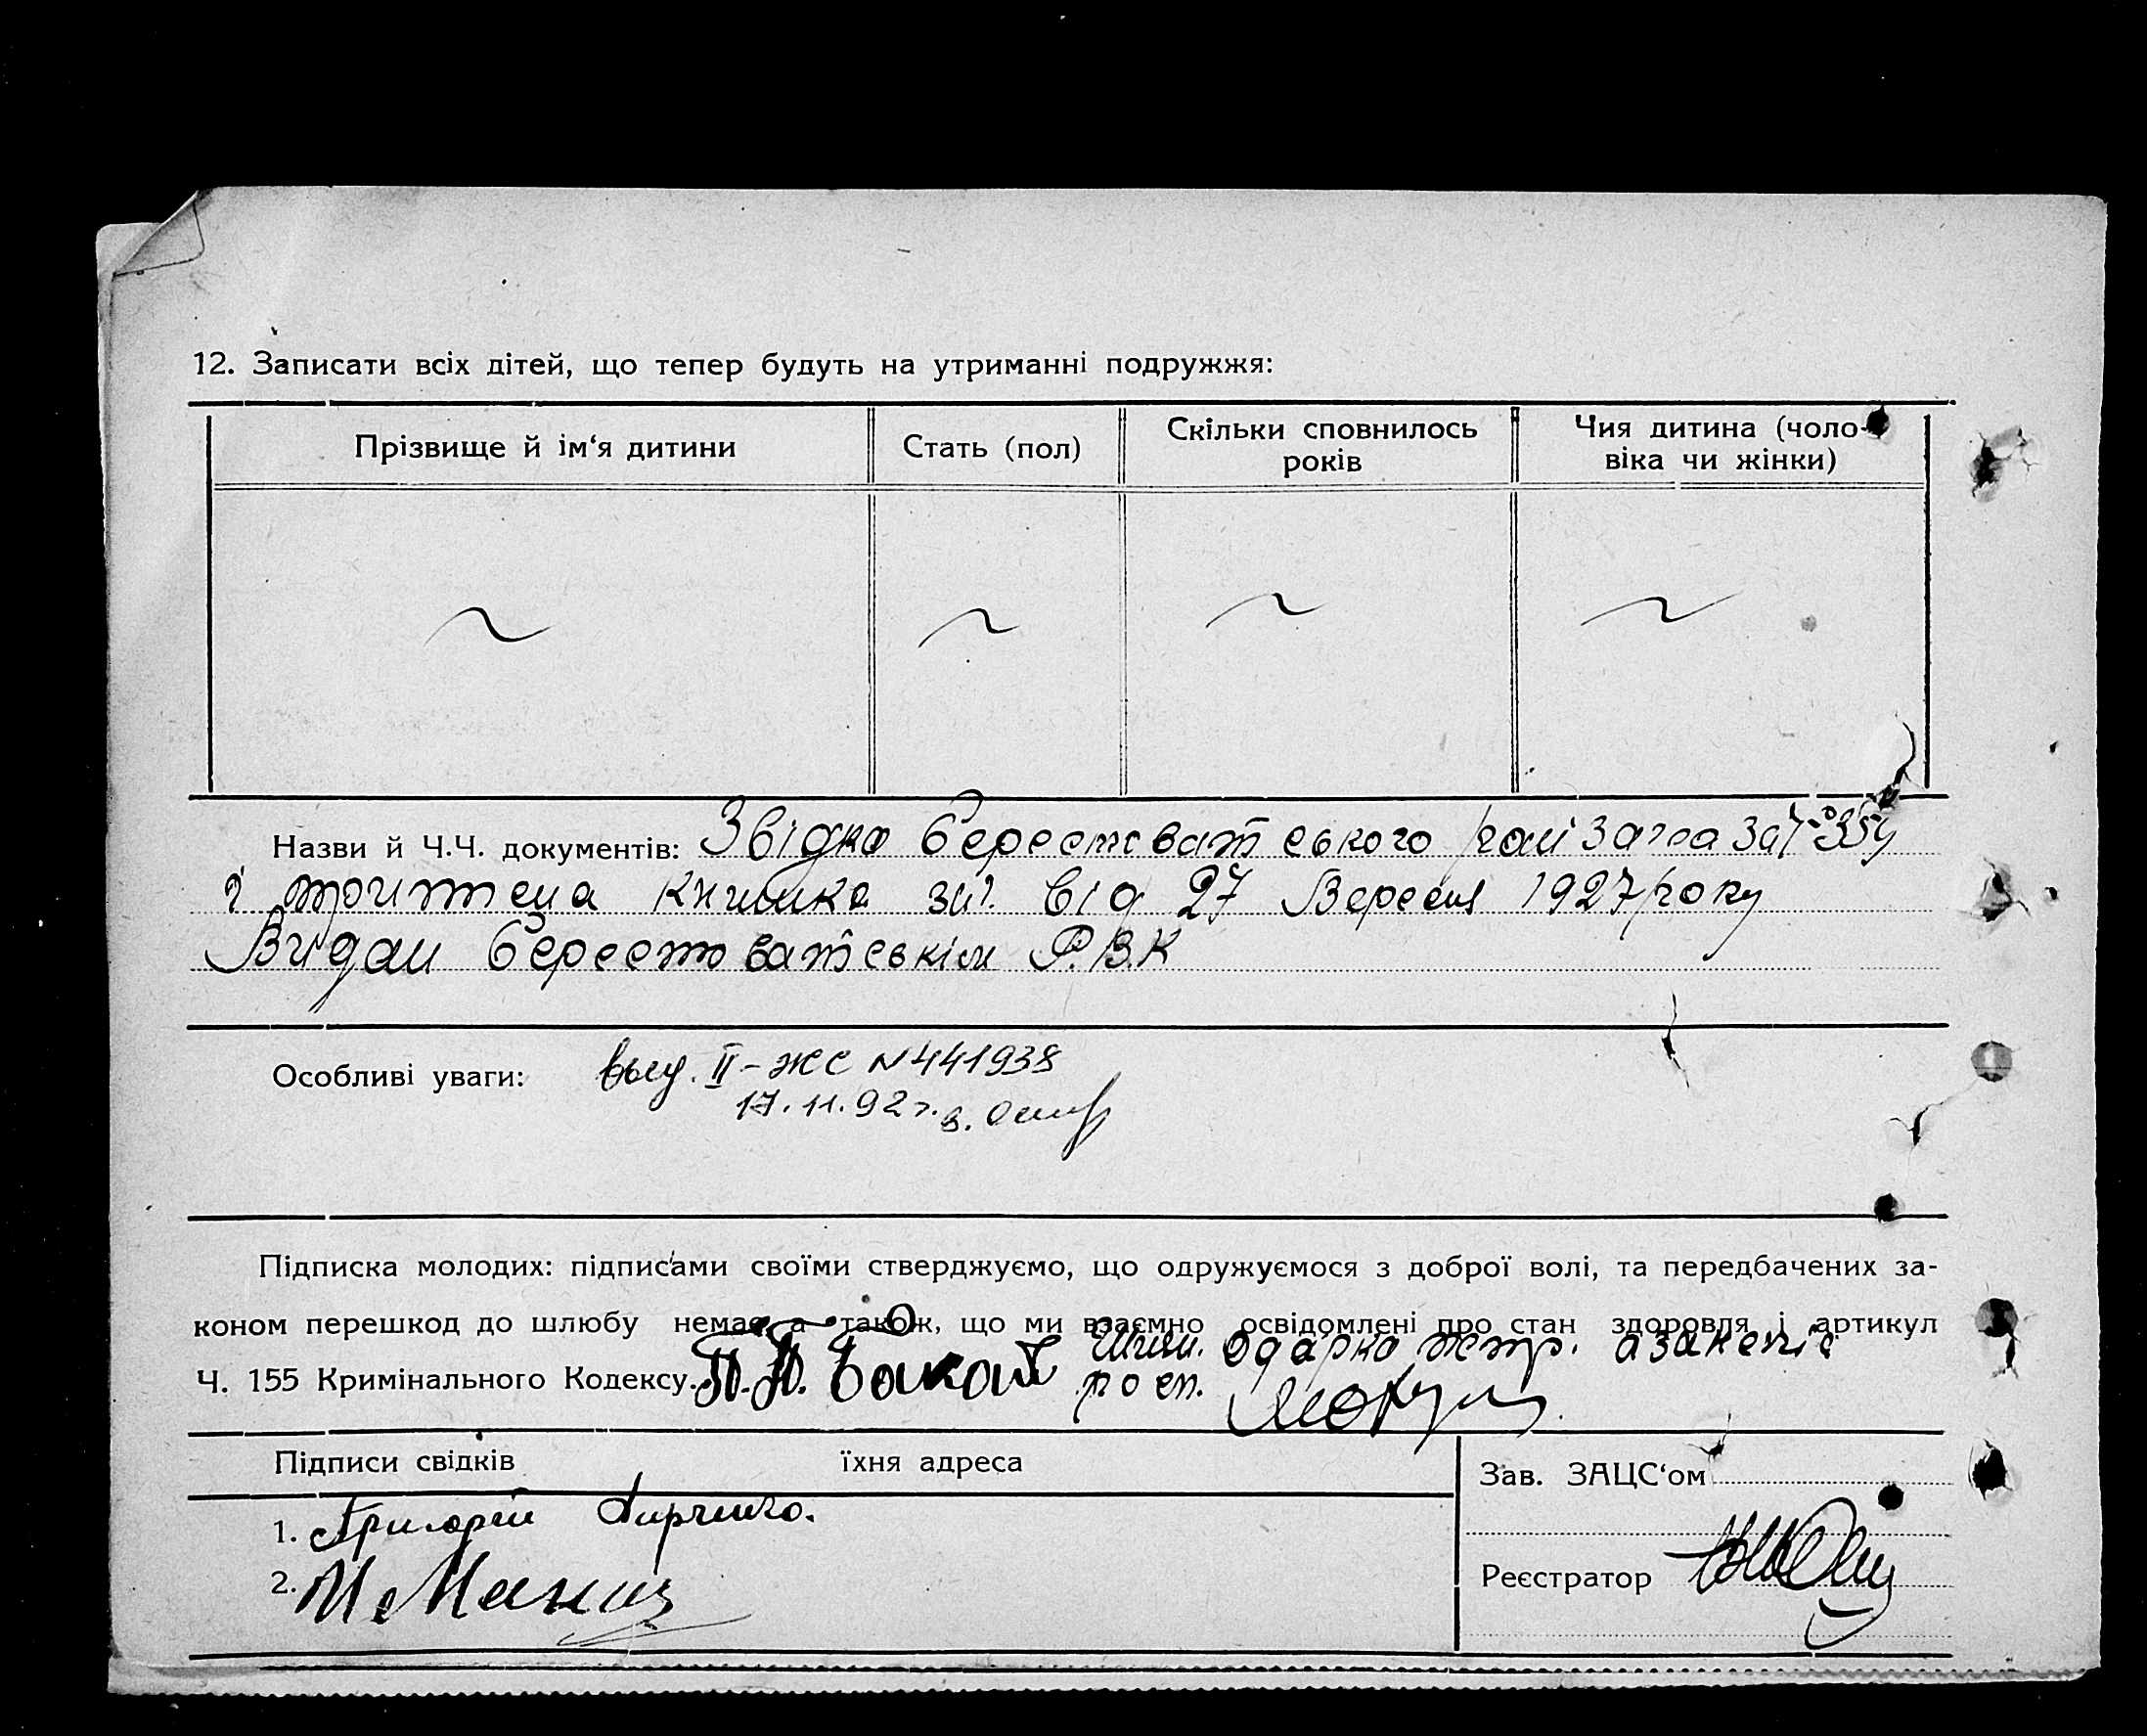 12. Записати всіх дітей, що тепер будуть на утриманні подружжя:
Прізвище й ім‘я дитини
Стать (пол)
Скільки сповнилось
років
Чия дитина (чоло-
віка чи жінки)
Назви й Ч.Ч. документів: Звідка берестоватського
книжка від 27 Вересня 1927 року
Видан берестоватськім Р.В.К
Особливі уваги: выд. II-ЖС N441938
17.11.92г.
Підписка молодих: підписами своїми стверджуємо, що одружуємося з доброї волі, та передбачених за-
коном перешкод до шлюбу немає, а також, що ми взаємно освідомлені про стан здоровля і артикул
Ч. 155 Кримінального Кодексу. Одарка
Підписи свідків
їхня адреса
1. Григорій
2.
Зав. ЗАЦС‘ом
Реєстратор